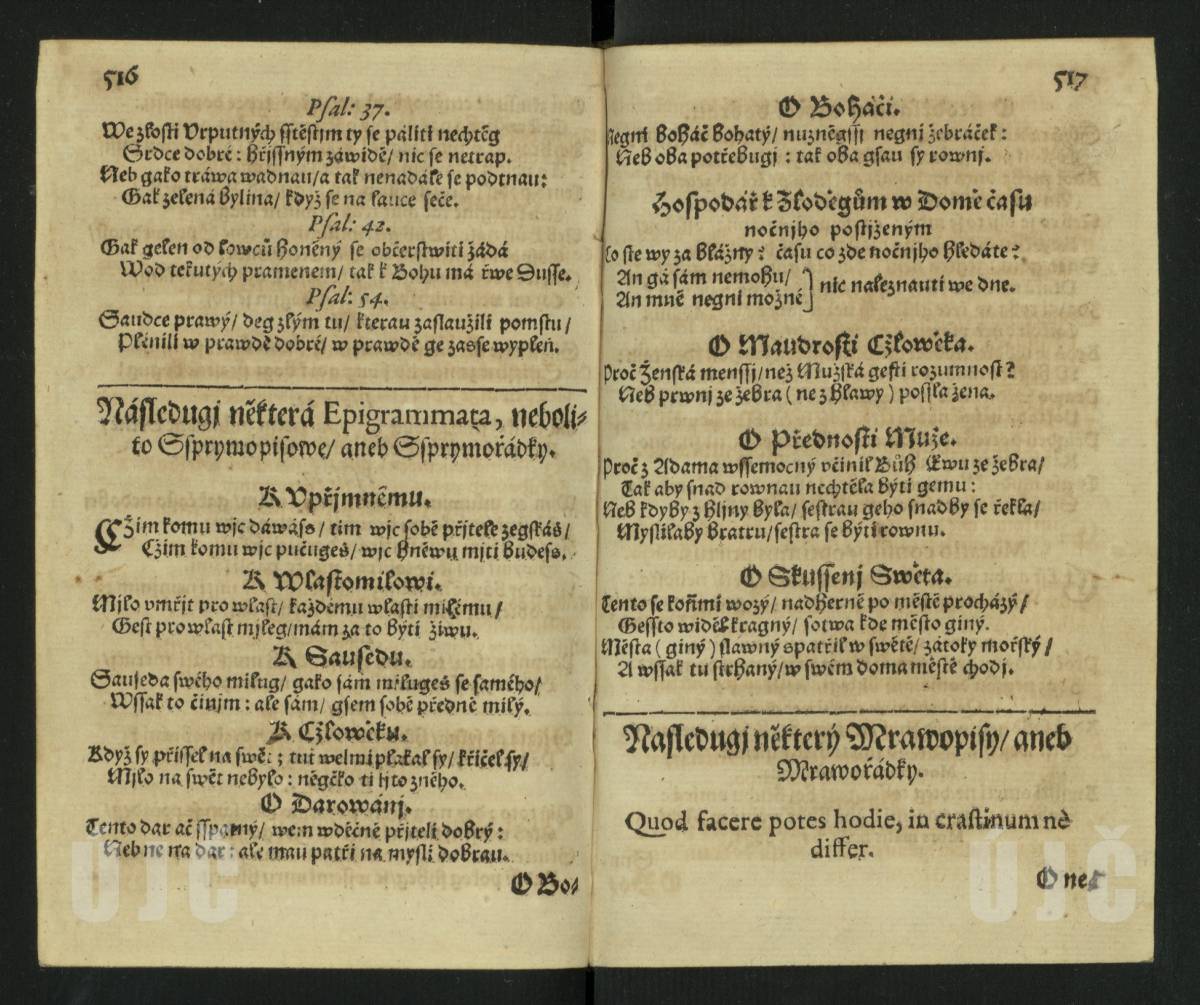 516
Psal: 37.
We zlosti Vrputných sstěstim ty se páliti nechtěg
Srdce dobré: hřjssným záwidě/ nic se netrap.
Neb gako tráwa wadnau/a tak nenadále se podtnau:
Gak zelená bylina/ když se na lauce seče.
Psal: 42.
Gak gelen od lowců honěný se občerstwiti žádá
Wod tekutých pramenem/ tak k Bohu má řwe Dusse.
Psal: 54.
Saudce prawý/ deg zlým tu/ kterau zaslaužili pomstu/
Plénili w prawdě dobré/ w prawdě ge zasse wypleň.
Následugj některá Epigrammata, neboli-
to Ssprymopisowe/ aneb Ssprymořádky.
K Vpřjmnému.
CŽim komu wjc dáwáss/ tim wjc sobě přjtele zegskáš/
Cžim komu wjc pučugeš/ wjc hněwu mjti budess.
K Wlastomilowi.
Mjlo vmřjt pro wlast/ každému wlasti milému/
Gest pro wlast mjleg/mám za to býti žiwu.
K Sausedu.
Sauseda swého milug/ gako sám milugeš se samého/
Wssak to činjm: ale sám/ gsem sobě předně milý.
K Cžlowěku.
Když sy přissel na swět; tut welmi plakal sy/ křičel sy/
Mjlo na swět nebylo: něgěko ti ljto zného.
O Darowánj.
Tento dar ač sspatný/ wem wděčně přjteli dobrý:
Neb ne na dar: ale mau patři na mysli dobrau.
O Bo-
517
O Boháči.
Negnj boháč bohatý/ nuzněgssj negnj žebráček:
Neb oba potřebugj: tak oba gsau sy rownj.
Hospodář k Zlodégům w Domě času
nočnjho postjženým
Co ste wy za blázny? času co zde nočnjho hledáte?
An gá sám nemohu/
An mně negnj možné] nic naleznauti we dne.
O Maudrosti Cžlowěka.
Proč Ženská menssj/než Mužská gesti rozumnost?
Neb prwnj ze žebra (ne z hlawy) possla žena.
O Přednosti Muže.
Proč z Adama wssemocný včinil Bůh Ewu ze žebra/
Tak aby snad rownau nechtěla býti gemu:
Neb kdyby z hljny byla/ sestrau geho snad by se řekla/
Myslilaby bratru/sestra se býti rownu.
O Skussenj Swěta.
Tento se koňmi wozý/ nadherně po městě procházý/
Gessto widěl kragný/ sotwa kde město giný.
Města (giný) slawný spatřil w swětě/ zátoky mořský/
A wssak tu strhaný/w swém doma městě chodj.
Nasledugj některý Mrawopisy/ aneb
Mrawořádky.
Quod facere potes hodie, in crastinum nè
differ.
O ne-
UJČ
UJČ